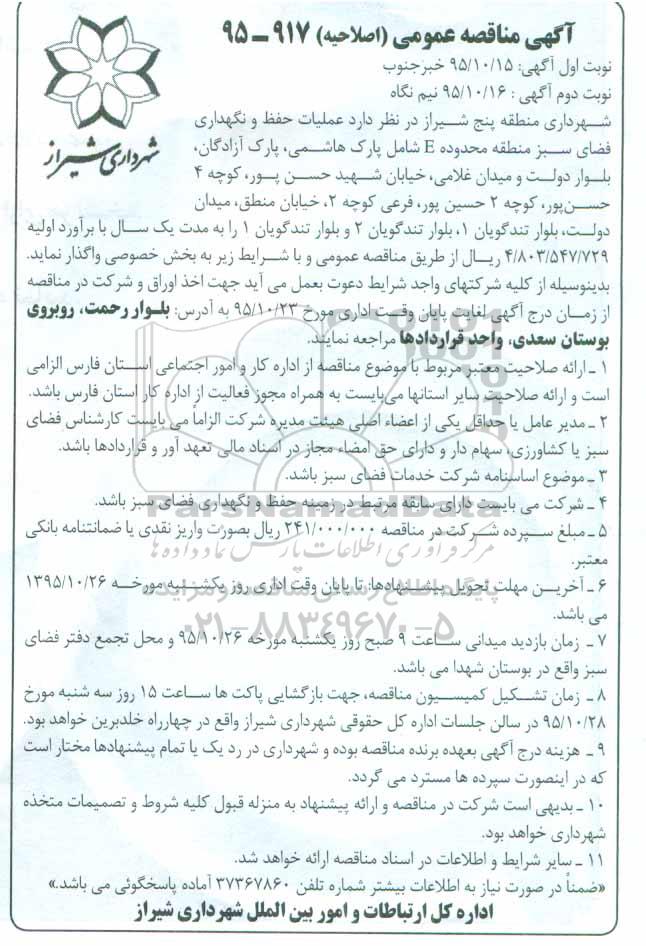 آگهی مناقصه عمومی (اصلاحیه) ۹۱۷ ـ ۹۵
نوبت اول آگهی: ۹۵/۱۰/۱۵ خبرجنوب
نوبت دوم آگهی : ۹۵/۱۰/۱۶ نیم نگاه
شهرداری شیراز
شهرداری منطقه پنج شیراز در نظر دارد عملیات حفظ و نگهداری
فضای سبز منطقه محدوده E شامل پارک هاشمی، پارک آزادگان،
بلوار دولت و میدان غلامی، خیابان شهید حسن پور، کوچه ۴
حسن‌پور، کوچه ۲ حسین پور، فرعی کوچه ۲، خیابان منطق، میدان
دولت، بلوار تندگویان ۱، بلوار تندگویان ۲ و بلوار تندگویان ۱ را به مدت یک سال با برآورد اولیه
۴/۸۰۳/۵۴۷/۷۲۹ ریال از طریق مناقصه عمومی و با شرایط زیر به بخش خصوصی واگذار نماید.
بدینوسیله از کلیه شرکتهای واجد شرایط دعوت بعمل می آید جهت اخذ اوراق و شرکت در مناقصه
از زمان درج آگهی لغایت پایان وقت اداری مورخ ۹۵/۱۰/۲۳ به آدرس: بلوار رحمت، روبروی
بوستان سعدی، واحد قراردادها مراجعه نمایند.
۱ ـ ارائه صلاحیت معتبر مربوط با موضوع مناقصه از اداره کار و امور اجتماعی استان فارس الزامی
است و ارائه صلاحیت سایر استانها می‌بایست به همراه مجوز فعالیت از اداره کار استان فارس باشد.
۲ ـ مدیر عامل یا حداقل یکی از اعضاء اصلی هیئت مدیره شرکت الزاماً می بایست کارشناس فضای
سبز یا کشاورزی، سهام دار و دارای حق امضاء مجاز در اسناد مالی تعهد آور و قراردادها باشد.
۳ ـ موضوع اساسنامه شرکت خدمات فضای سبز باشد.
۴ ـ شرکت می بایست دارای سابقه مرتبط در زمینه حفظ و نگهداری فضای سبز باشد.
ParsNamadData
۵ ـ مبلغ سپرده شرکت در مناقصه ۲۴۱/۰۰۰/۰۰۰ ریال بصورت واریز نقدی یا ضمانتنامه بانکی
معتبر.
مرکز فرآوری اطلاعات پارس نماد داده ها
۶ ـ آخرین مهلت تحویل پیشنهادها: تا پایان وقت اداری روز یکشنبه مورخه ۱۳۹۵/۱۰/۲۶
می باشد.
۰۲۱-۸۸۳۴۹۶۷۰-۵
۷ ـ زمان بازدید میدانی ساعت ۹ صبح روز یکشنبه مورخه ۹۵/۱۰/۲۶ و محل تجمع دفتر فضای
سبز واقع در بوستان شهدا می باشد.
۸ ـ زمان تشکیل کمیسیون مناقصه، جهت بازگشایی پاکت ها ساعت ۱۵ روز سه شنبه مورخ
۹۵/۱۰/۲۸ در سالن جلسات اداره کل حقوقی شهرداری شیراز واقع در چهارراه خلدبرین خواهد بود.
۹ ـ هزینه درج آگهی بعهده برنده مناقصه بوده و شهرداری در رد یک یا تمام پیشنهادها مختار است
که در اینصورت سپرده ها مسترد می گردد.
۱۰ ـ بدیهی است شرکت در مناقصه و ارائه پیشنهاد به منزله قبول کلیه شروط و تصمیمات متخذه
شهرداری خواهد بود.
۱۱ ـ سایر شرایط و اطلاعات در اسناد مناقصه ارائه خواهد شد.
«ضمناً در صورت نیاز به اطلاعات بیشتر شماره تلفن ۳۷۳۶۷۸۶۰ آماده پاسخگوئی می باشد.»
اداره کل ارتباطات و امور بین الملل شهرداری شیراز